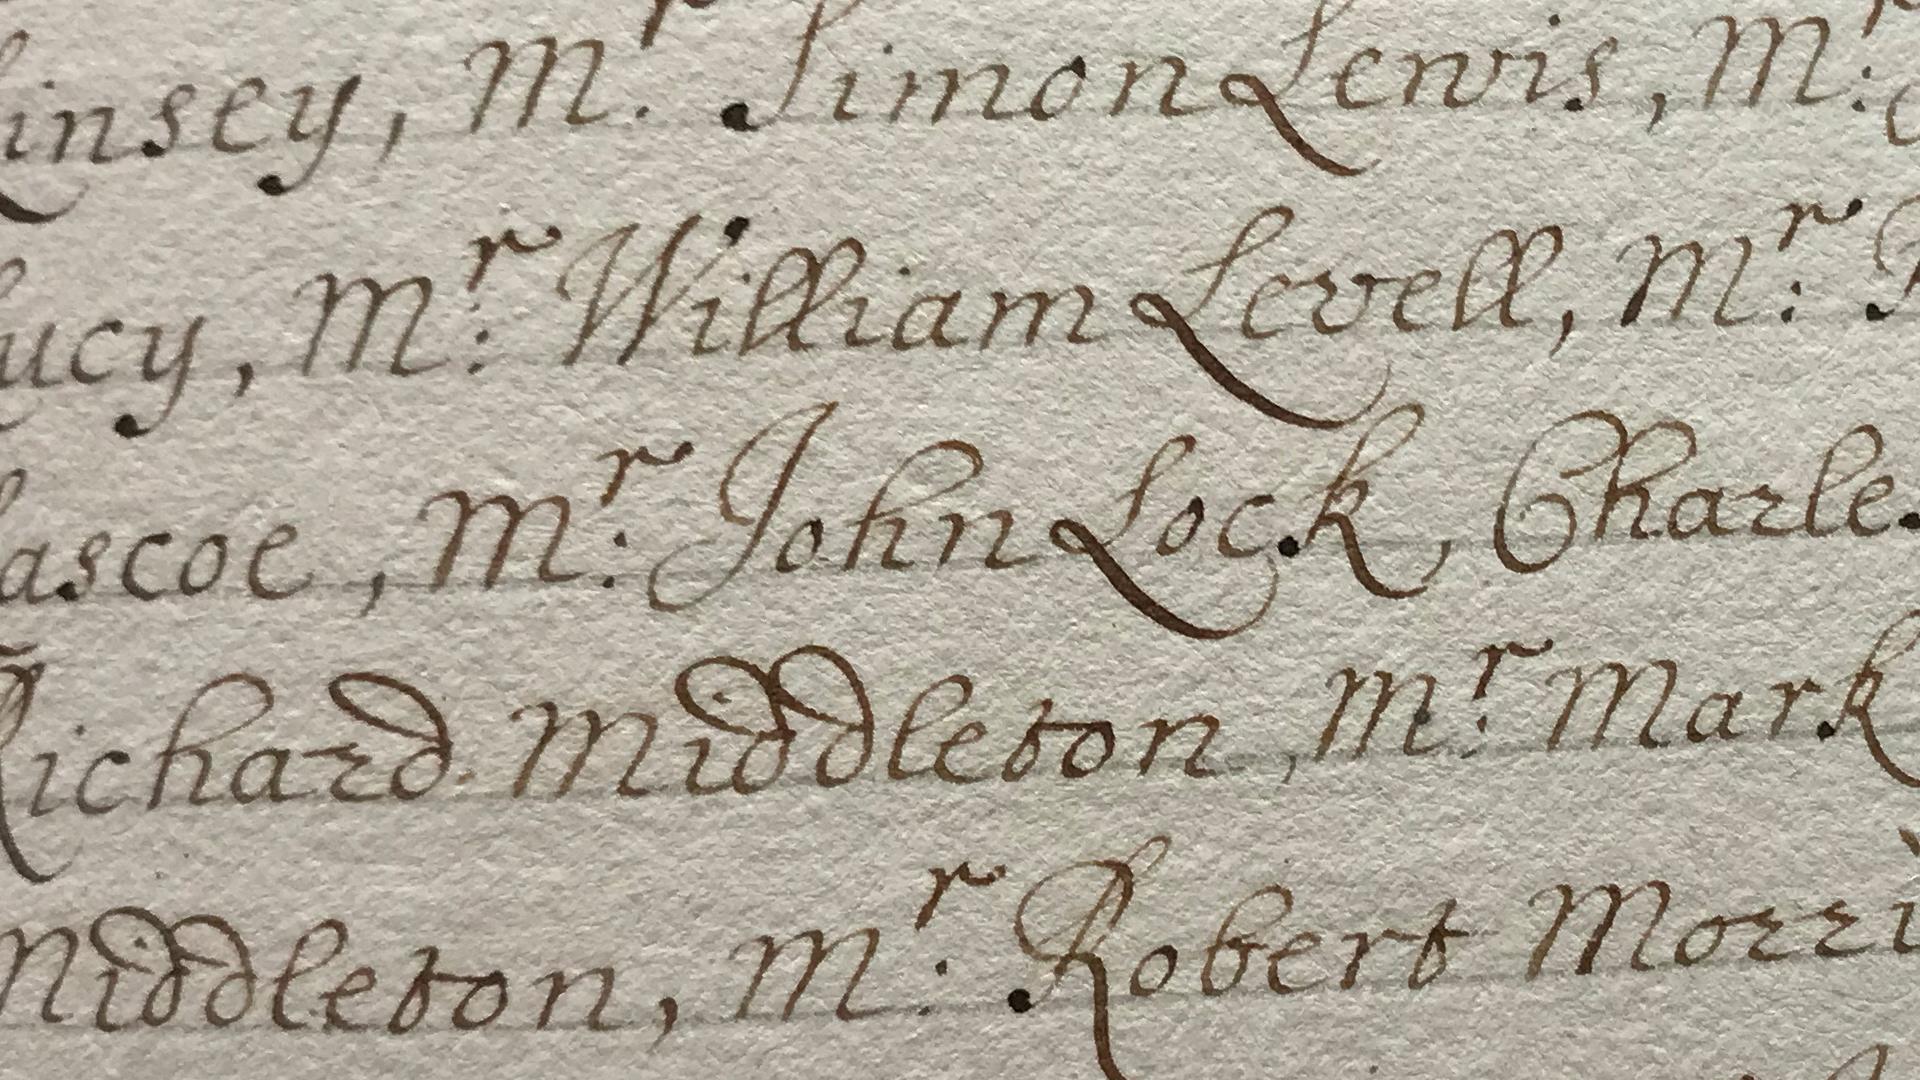 Linsey, Mr. Simon Lewis, Mr:
Lucy, Mr: William Levell, Mr:
Lascoe, Mr: John Lock, Charle
Richard Middleton, Mr: Mark
Middleton, Mr. Robert Morri